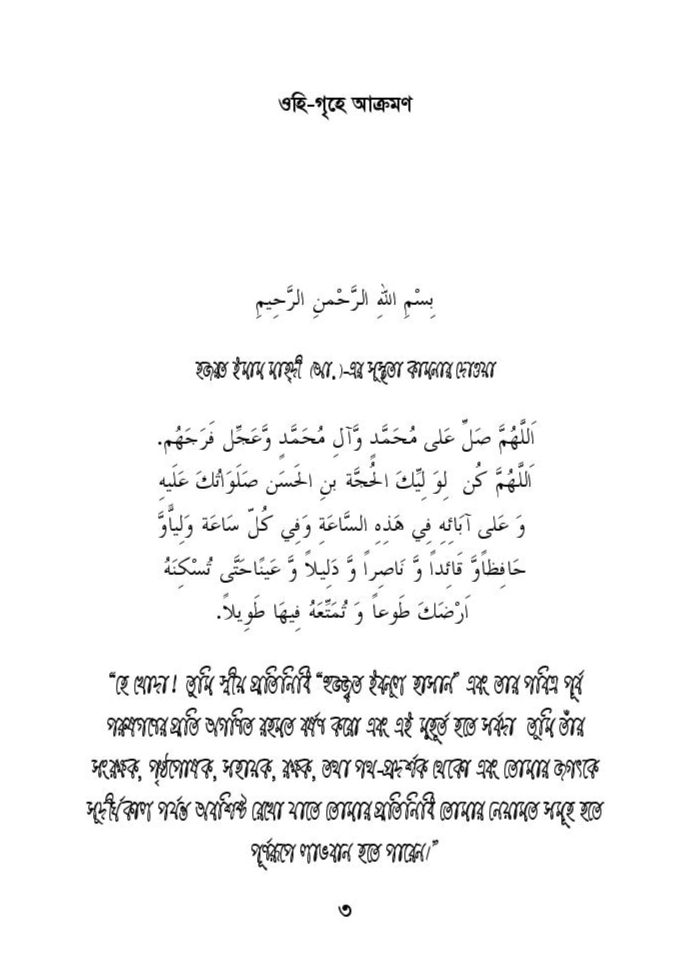 ওহি-গৃহে আক্রমণ
بِسْمِ اللهِ الرَّحْمنِ الرَّحِيمِ
হজরত ইমাম মাহ্দী (আ.)-এর সুস্থতা কামনার দোওয়া
اَللَّهُمَّ صَلِّ عَلى مُحَمَّدٍ وَّآلِ مُحَمَّدٍ وَّعَجِّل فَرَجَهُم.
اَللَّهُمَّ كُن لِوَ لِيِّكَ الحُجَّة بنِ الحَسَن صَلَوَاتُكَ عَلَيهِ
وَ عَلى آبَائِهِ فِي هَذِهِ السَّاعَةِ وَفِي كُلّ سَاعَة وَلِياًّوَّ
حَافِظاًوَّ قَائِداً وَّ نَاصِراً وَّ دَلِيلاً وَّ عَينًاحَتَّى تُسْكِنَهُ
اَرْضَكَ طَوعاً وَ تُمَتِّعَهُ فِيهَا طَوِيلاً.
“হে খোদা! তুমি স্বীয় প্রতিনিধি “হুজ্জাত ইবনুল হাসান” এবং তার পবিত্র পূর্ব
পরুষগণের প্রতি অগণিত রহমত বর্ষণ করো এবং এই মুহূর্ত হতে সর্বদা তুমি তাঁর
সংরক্ষক, পৃষ্ঠপোষক, সহায়ক, রক্ষক, তথা পথ-প্রদর্শক থেকো এবং তোমার জগৎকে
সুদীর্ঘকাল পর্যন্ত অবশিষ্ট রেখো যাতে তোমার প্রতিনিধি তোমার নেয়ামত সমূহ হতে
পূর্ণরূপে লাভবান হতে পারেন।”
৩